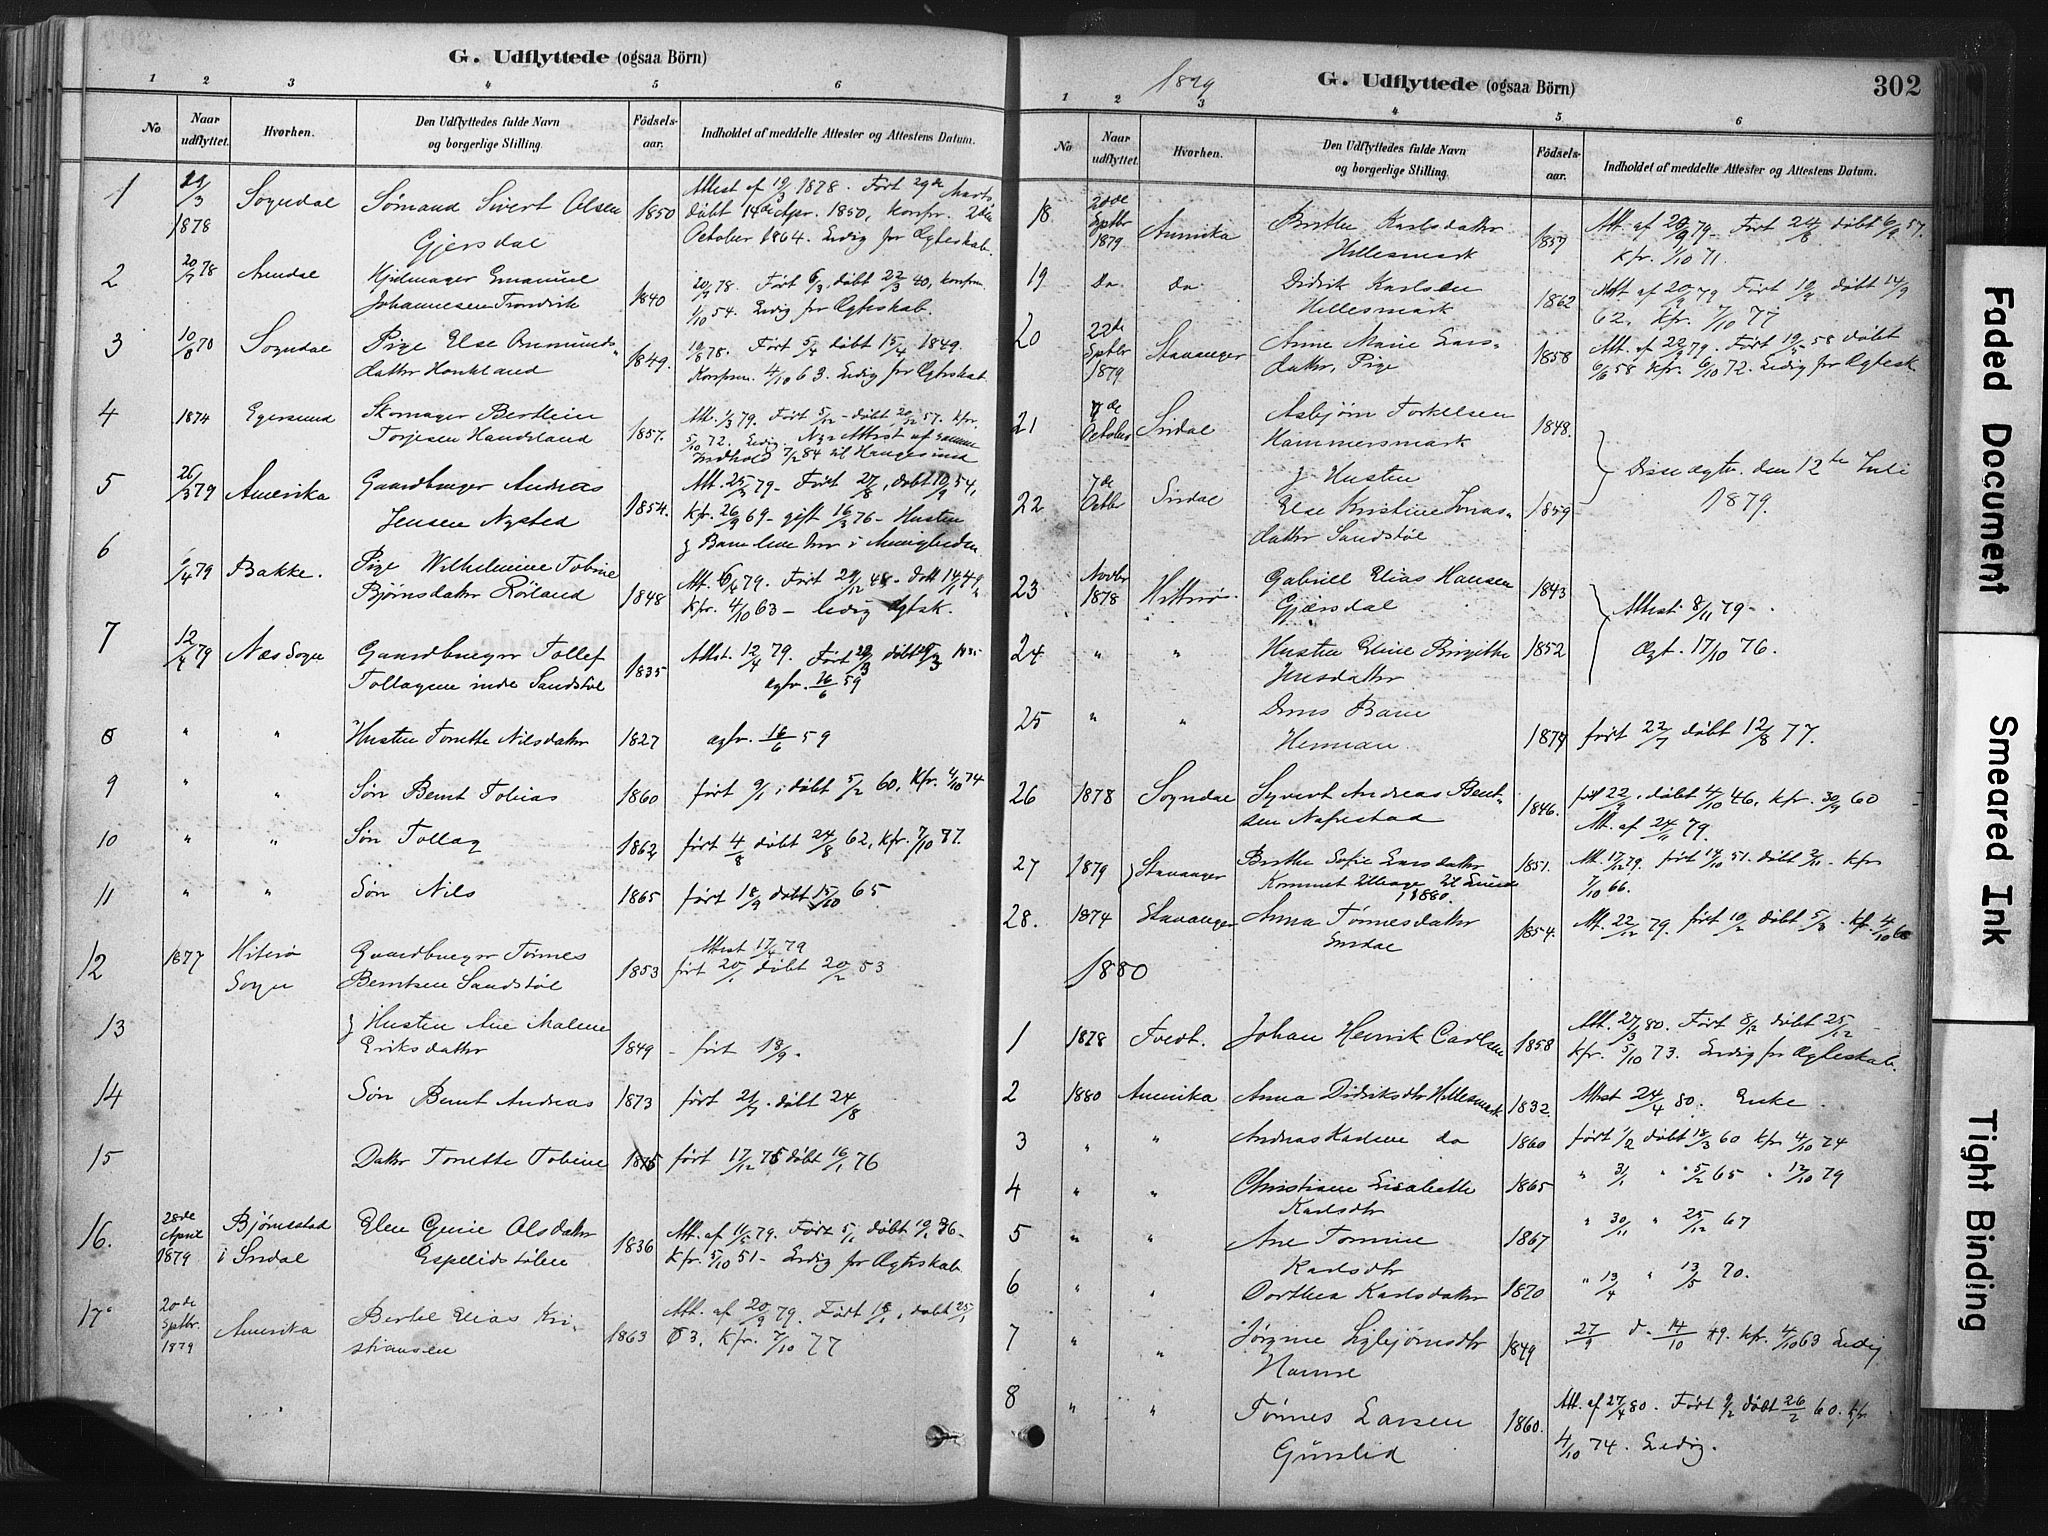 G. Udflyttede (ogsaa Börn)
1 2 3 4 5 6
No Naar udflyttet. Hvorhen. Den Udflyttedes fulde Navn og borgerlige Stilling. Födsels-aar. Indholdet af meddelte Attester og Attestens Datum.
1 21/3 1878 Sogndal Sømand Sivert Olsen Gjersdal 1850 Attest af 19/3 1878. Født 29de Marts, døbt 14de Apr. 1850, konfr. 2den October 1864. Ledig for Ægteskab.
2 20/9 78 Arendal Hjulmager Emanuel Johannesen Trondvik 1840 20/9 78. Født 6/3, døbt 22/3 40, konfrm. 1/10 54. Ledig for Ægteskab.
3 10/8 78 Sogndal Pige Else Osmunds-datter Haukland 1849. 10/8 78. Født 5/4 døbt 15/4 1849. Konfrm. 4/10 63. Ledig for Ægteskab.
4 1874 Egersund Skomager Berthin Torjesen Haukland 1857. Att. 1/3 79. Født 5/12 døbt 20/12 57. Kfr. 5/10 72. Ledig. Nye Attest af samme Indhold 7/2 84 til Haugesund
5 26/3 79 Amerika Gaardbruger Andreas Jensen Nysted 1854. Att. 25/3 79 - Født 27/8, døbt 10/9 54, Kfr. 26/9 69 - gift 16/3 76 - Husten & Barn leve her i Menigheden.
6 1/4 79 Bakke. Pige Wilhelmine Tobine Bjørnsdatter Rørland 1848 Att. 6/4 79. Født 29/12 48 - Døbt 14/1 49, Kfr. 4/10 63 - ledig Ægtsk.
7 12/4 79 Næs Sogn Gaardbruger Tollef Tollagsen indre Sandstøl 1835 Attest. 12/4 79. Født døbt 1835 ægtv. 16/6 59
8 " " Husten Tonette Nilsdatter 1827 ægtv. 16/6 59
9 " " Søn Bernt Tobias 1860 født 9/1, døbt 5/2 60, Kfr. 4/10 74
10 " " Søn Tollag 1862 født 4/8 døbt 24/8 62, Kfr. 7/10 77.
11 " " Søn Nils 1865 født 18/9 døbt 15/10 65
12 1877 Hiterø Sogn Gaardbruger Tønnes Berntsen Sandstøl 1853 Attest 17/4 79 født 20/1 døbt 20/2 53
13 & Husten Ane Malene Eriksdatter 1849 - født 18/9.
14 Søn Bernt Andreas 1873 født 21/7. døbt 24/8
15 Datter Tonette Tobine 1875 født 17/12 75 døbt 16/1 76
16. 28de April 1879 Bjørnestad i Sirdal Elen Gurine Olsdatter Espelidstølen 1836 Att. af 11/5 79. Født 5/1 døbt 19/1 36 - Kfr. 5/10 51 - Ledig for Ægteskab.
17 20de Sptbr. 1879 Amerika Bertel Elias Kri-stiansen 1863 Att. af 20/9 79. Født, døbt 25/1 63. Kfr. 7/10 77
1879
G. Udflyttede (ogsaa Börn) 302
1 2 3 4 5 6
No Naar udflyttet. Hvorhen. Den Udflyttedes fulde Navn og borgerlige Stilling. Födsels-aar. Indholdet af meddelte Attester og Attestens Datum.
18 20de Sptbr 1879 Amerika Berthe Karlsdatter Hillesmark 1857 Att. af 20/9 79 - Født 24/8 døbt 6/9 57. Kfr. 1/10 71.
19 Do Do Didrik Karlsen Hillesmark 1862 Att af 20/9 79 Født 19/9 døbt 14/9 62, Kfr. 7/10 77
20 22de Sptbr 1879 Stavanger Anne Marie Lars-datter, Pige 1858 Att. af 22/9 79. Født 19/5 58 døbt 6/6 58 Kfr. 6/10 72. Ledig for Ægtesk
21 7de October Sirdal Asbjørn Torkelsen Hammersmark 1848. Disse ægtv. den 12te Juli 1879.
22 7de Octbr Sirdal & Husten Else Kristine Jonas-datter Sandstøl 1859
23 Novbr 1878 Hitterø Gabriel Elias Hansen Gjersdal 1843 Attest. 8/11 79 -
24 " " Husten Eline Birgitte Jensdatter 1852 Ægt. 17/10 76.
25 " " Deres Barn Herman. 1877 født 22/7 døbt 12/8 77.
26 1878 Sogndal Syvert Andreas Bent-sen Nafrestad 1846. født 22/9, døbt 4/10 46, kfr. 30/9 60 Att. af 24/11 79.
27 1879 Stavanger Berthe Sofie Larsdatter 1851. Att. 17/12 79. født 14/10 51. døbt 2/11. Kfr 7/10 66.
Kommet tilbage til Lund i 1880.
28. 1874 Stavanger Anna Tønnesdatter Eirdal 1854. Att. 22/12 79. født 10/2 døbt 5/3. Kf. 4/10 68
1880
1 1878 Tvedt. Johan Henrik Carlsen 1858 Att. 27/3 80. Født 8/12 døbt 25/12 Kfr. 5/10 73. Ledig for Ægteskab.
2 1880 Amerika Anna Didriksdtr Hillesmark 1832. Attest 24/4 80. Enke.
3 " " Andreas Karlsen do 1860 født 1/2 døbt 18/3 60 Kfr 4/10 74
4 " " Christiane Lisabette Karlsdtr 1865 " 3/1 " 5/2 65 " 12/10 79
5 " " Ane Tomine Karlsdtr 1867 " 30/11 " 25/12 67
6 " " Dorthea Karlsdatter 1870 " 13/4 " 13/5 70.
7 " " Jørgine Sigbjørnsdtr Hamre 1849 27/9 d. 14/10 49. Kfr. 4/10 63 Ledig
8 " " Tønnes Larsen Gurslid 1860. Att. af 27/4 80. Født 9/2 døbt 26/2 60. Kfr 4/10 74. Ledig.
Faded Document
Smeared Ink
Tight Binding